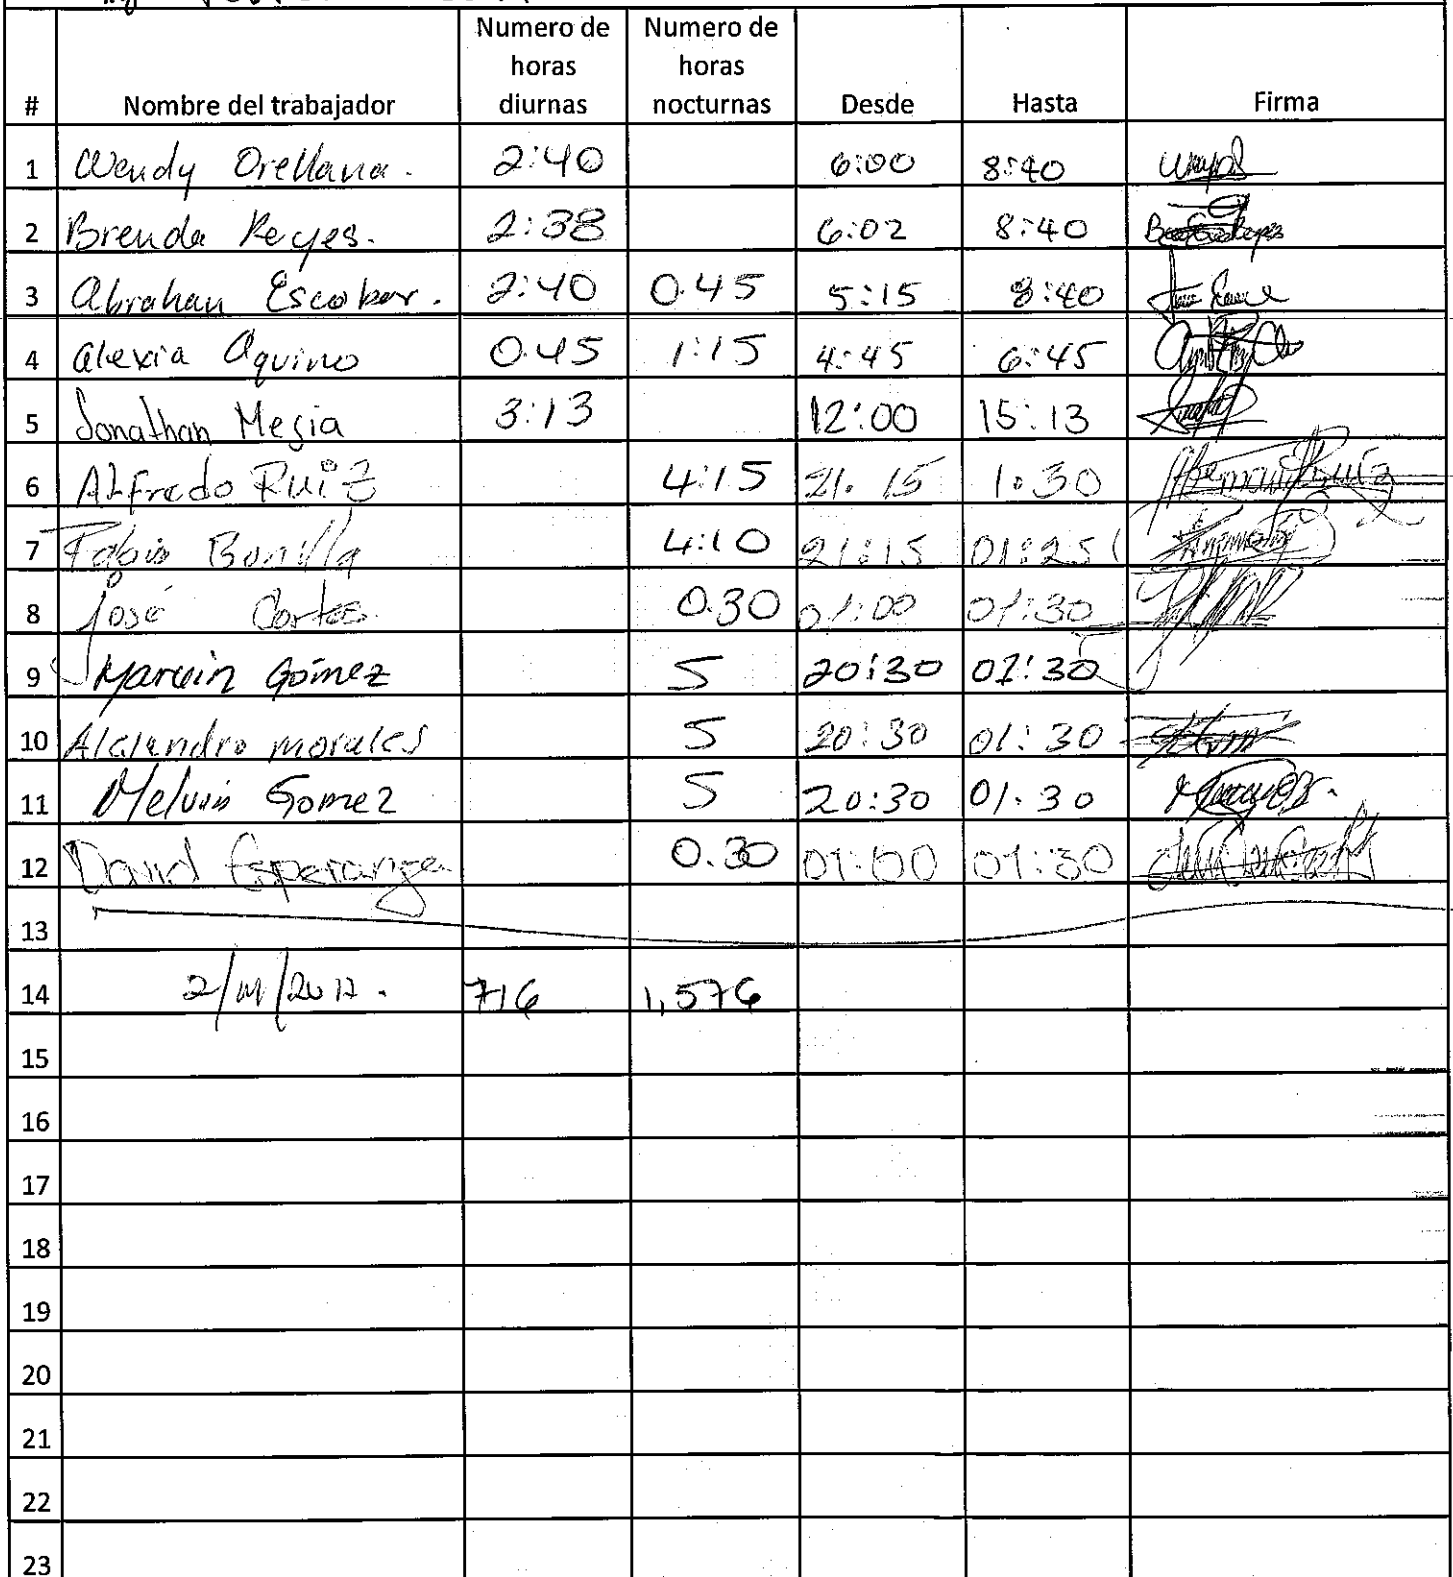 # Nombre del trabajador Numero de horas diurnas Numero de horas nocturnas Desde Hasta Firma
1 Wendy Orellana. 2:40 6:00 8:40
2 Brenda Reyes. 2:38 6:02 8:40
3 Abrahan Escobar. 2:40 0.45 5:15 8:40
4 Alexia Aquino 0.45 1:15 4:45 6:45
5 Jonathan Mejia 3:13 12:00 15:13
6 Alfredo Ruiz 4:15 21.15 1:30
7 Fabio Bonilla 4:10 21:15 01:25
8 José Cortes. 0.30 01:00 01:30
9 Marvin Gómez 5 20:30 01:30
10 Alejandro morales 5 20:30 01:30
11 Melvin Gomez 5 20:30 01:30
12 David Esperanza 0.30 01:00 01:30
13
14 716 1,576
15
16
17
18
19
20
21
22
23